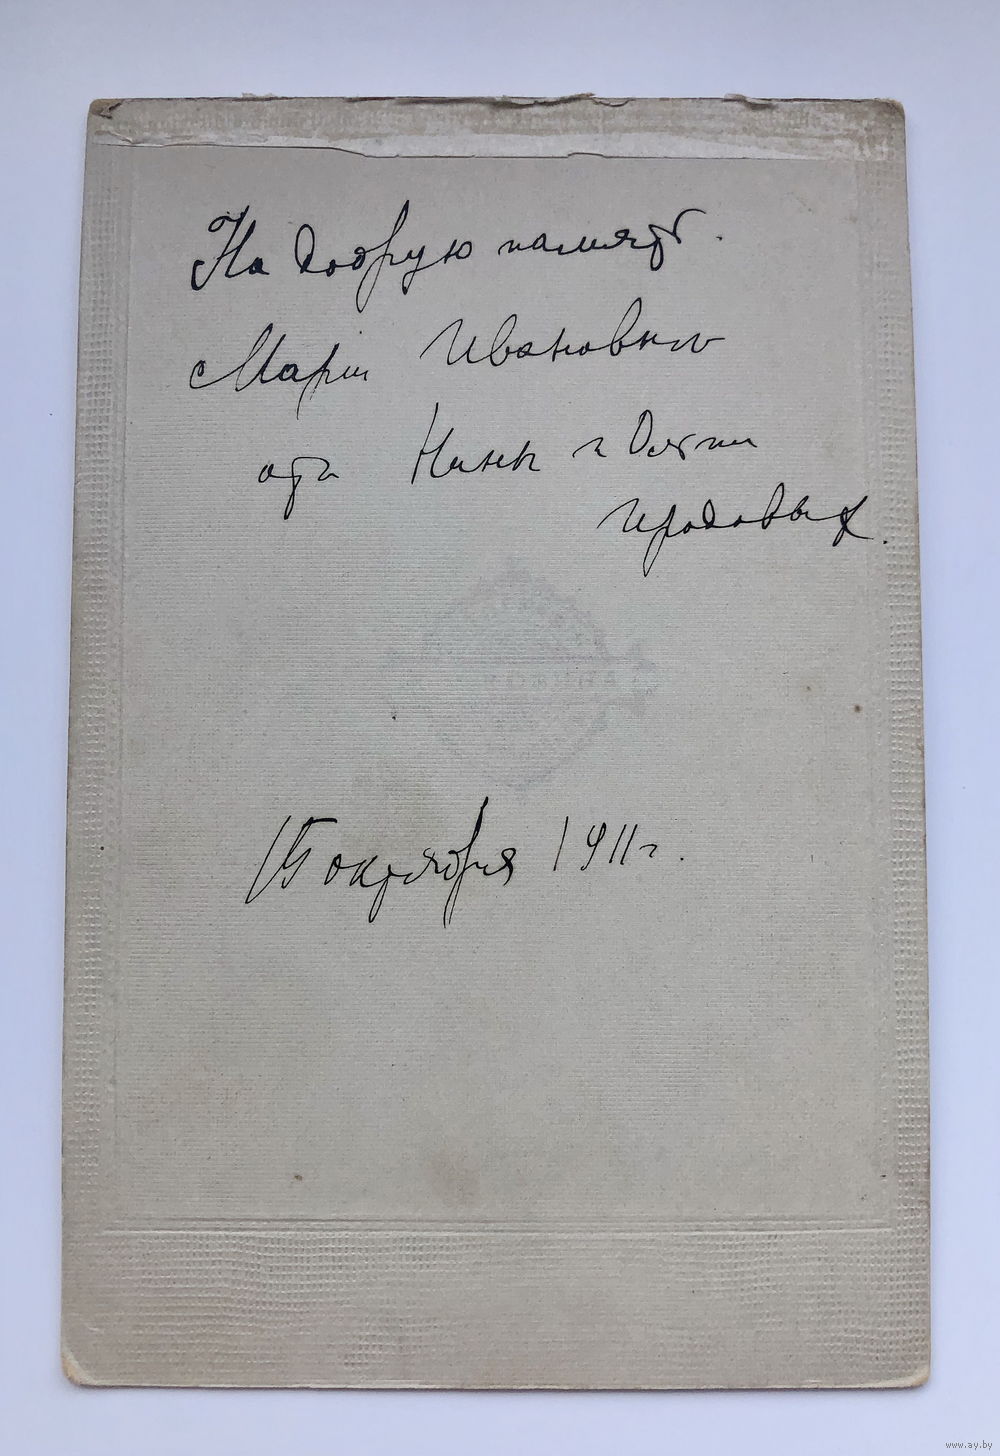 На добрую память.
Маріи Ивановнѣ
отъ Нины и Ольги
Иродовых.
15 октября 1911 г.
www.ay.by